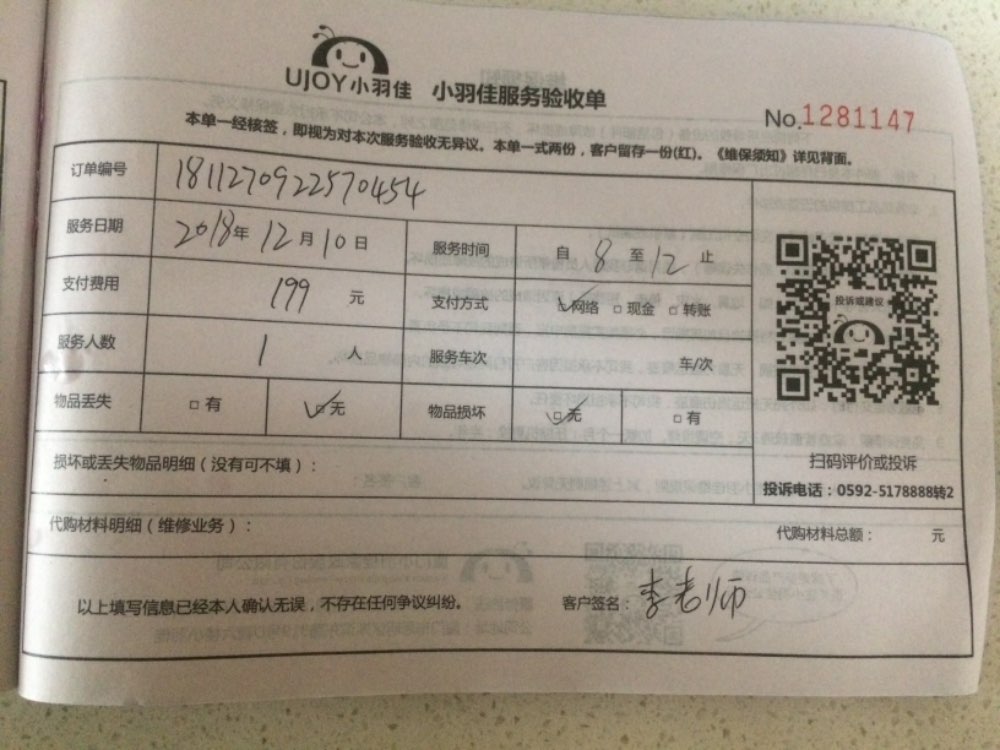 UJOY小羽佳 小羽佳服务验收单
No.1281147
本单一经核签，即视为对本次服务验收无异议。本单一式两份，客户留存一份(红)。《维保须知》详见背面。
订单编号 1811270922570454
服务日期 2018年12月10日 服务时间 自8至12止
支付费用 199元 支付方式 网络 现金 转账
投诉或建议
服务人数 1人 服务车次 车/次
物品丢失 有 无 物品损坏 无 有
扫码评价或投诉
损坏或丢失物品明细（没有可不填）：
投诉电话：0592-5178888转2
代购材料明细（维修业务）： 代购材料总额： 元
以上填写信息已经本人确认无误，不存在任何争议纠纷。 客户签名：李老师